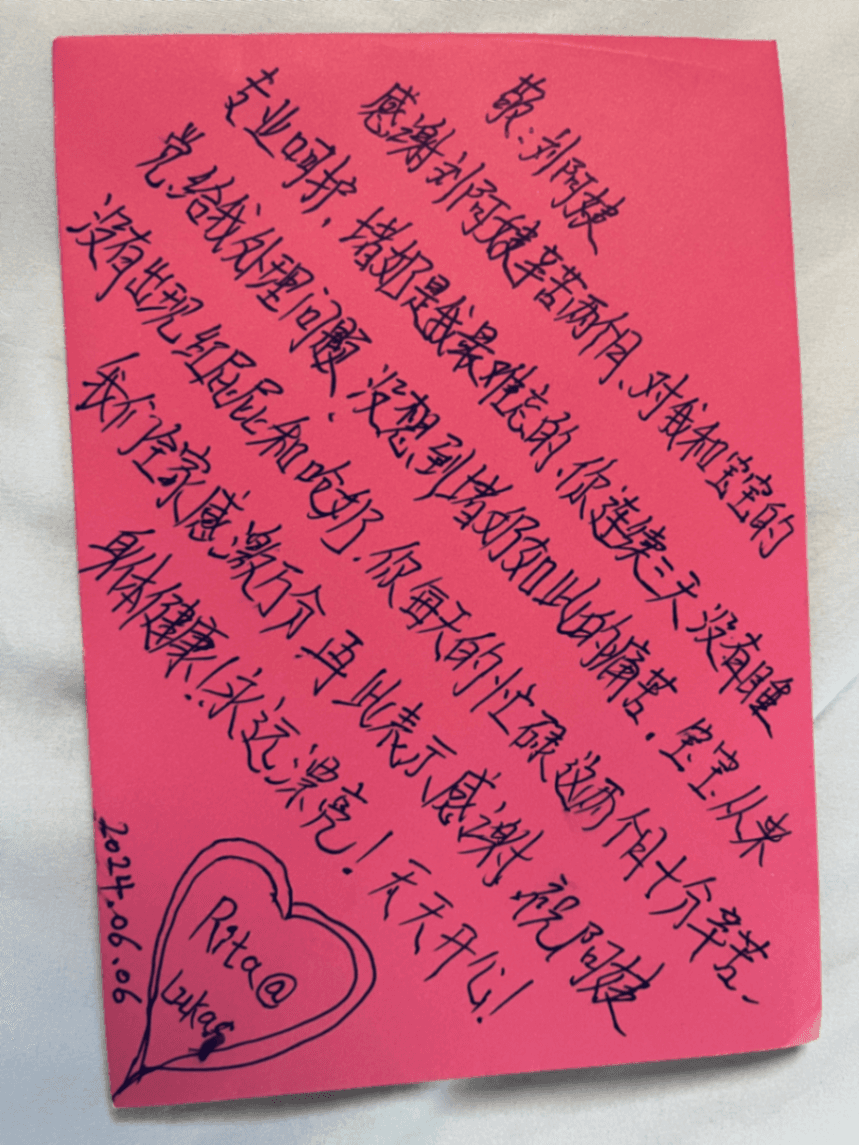 敬:刘阿姨
感谢刘阿姨辛苦两个月、对我和宝宝的
专业呵护,堵奶是我最难忘的、你连续三天没有睡
觉给我处理问题、没想到堵奶如此的痛苦.宝宝从来
没有出现红屁屁和呛奶.你每天的忙碌这两个月十分辛苦、
我们全家感激万分.再此表示感谢.祝阿姨
身体健康!永远漂亮!天天开心!
Rita@
Lukas
2024.06.06